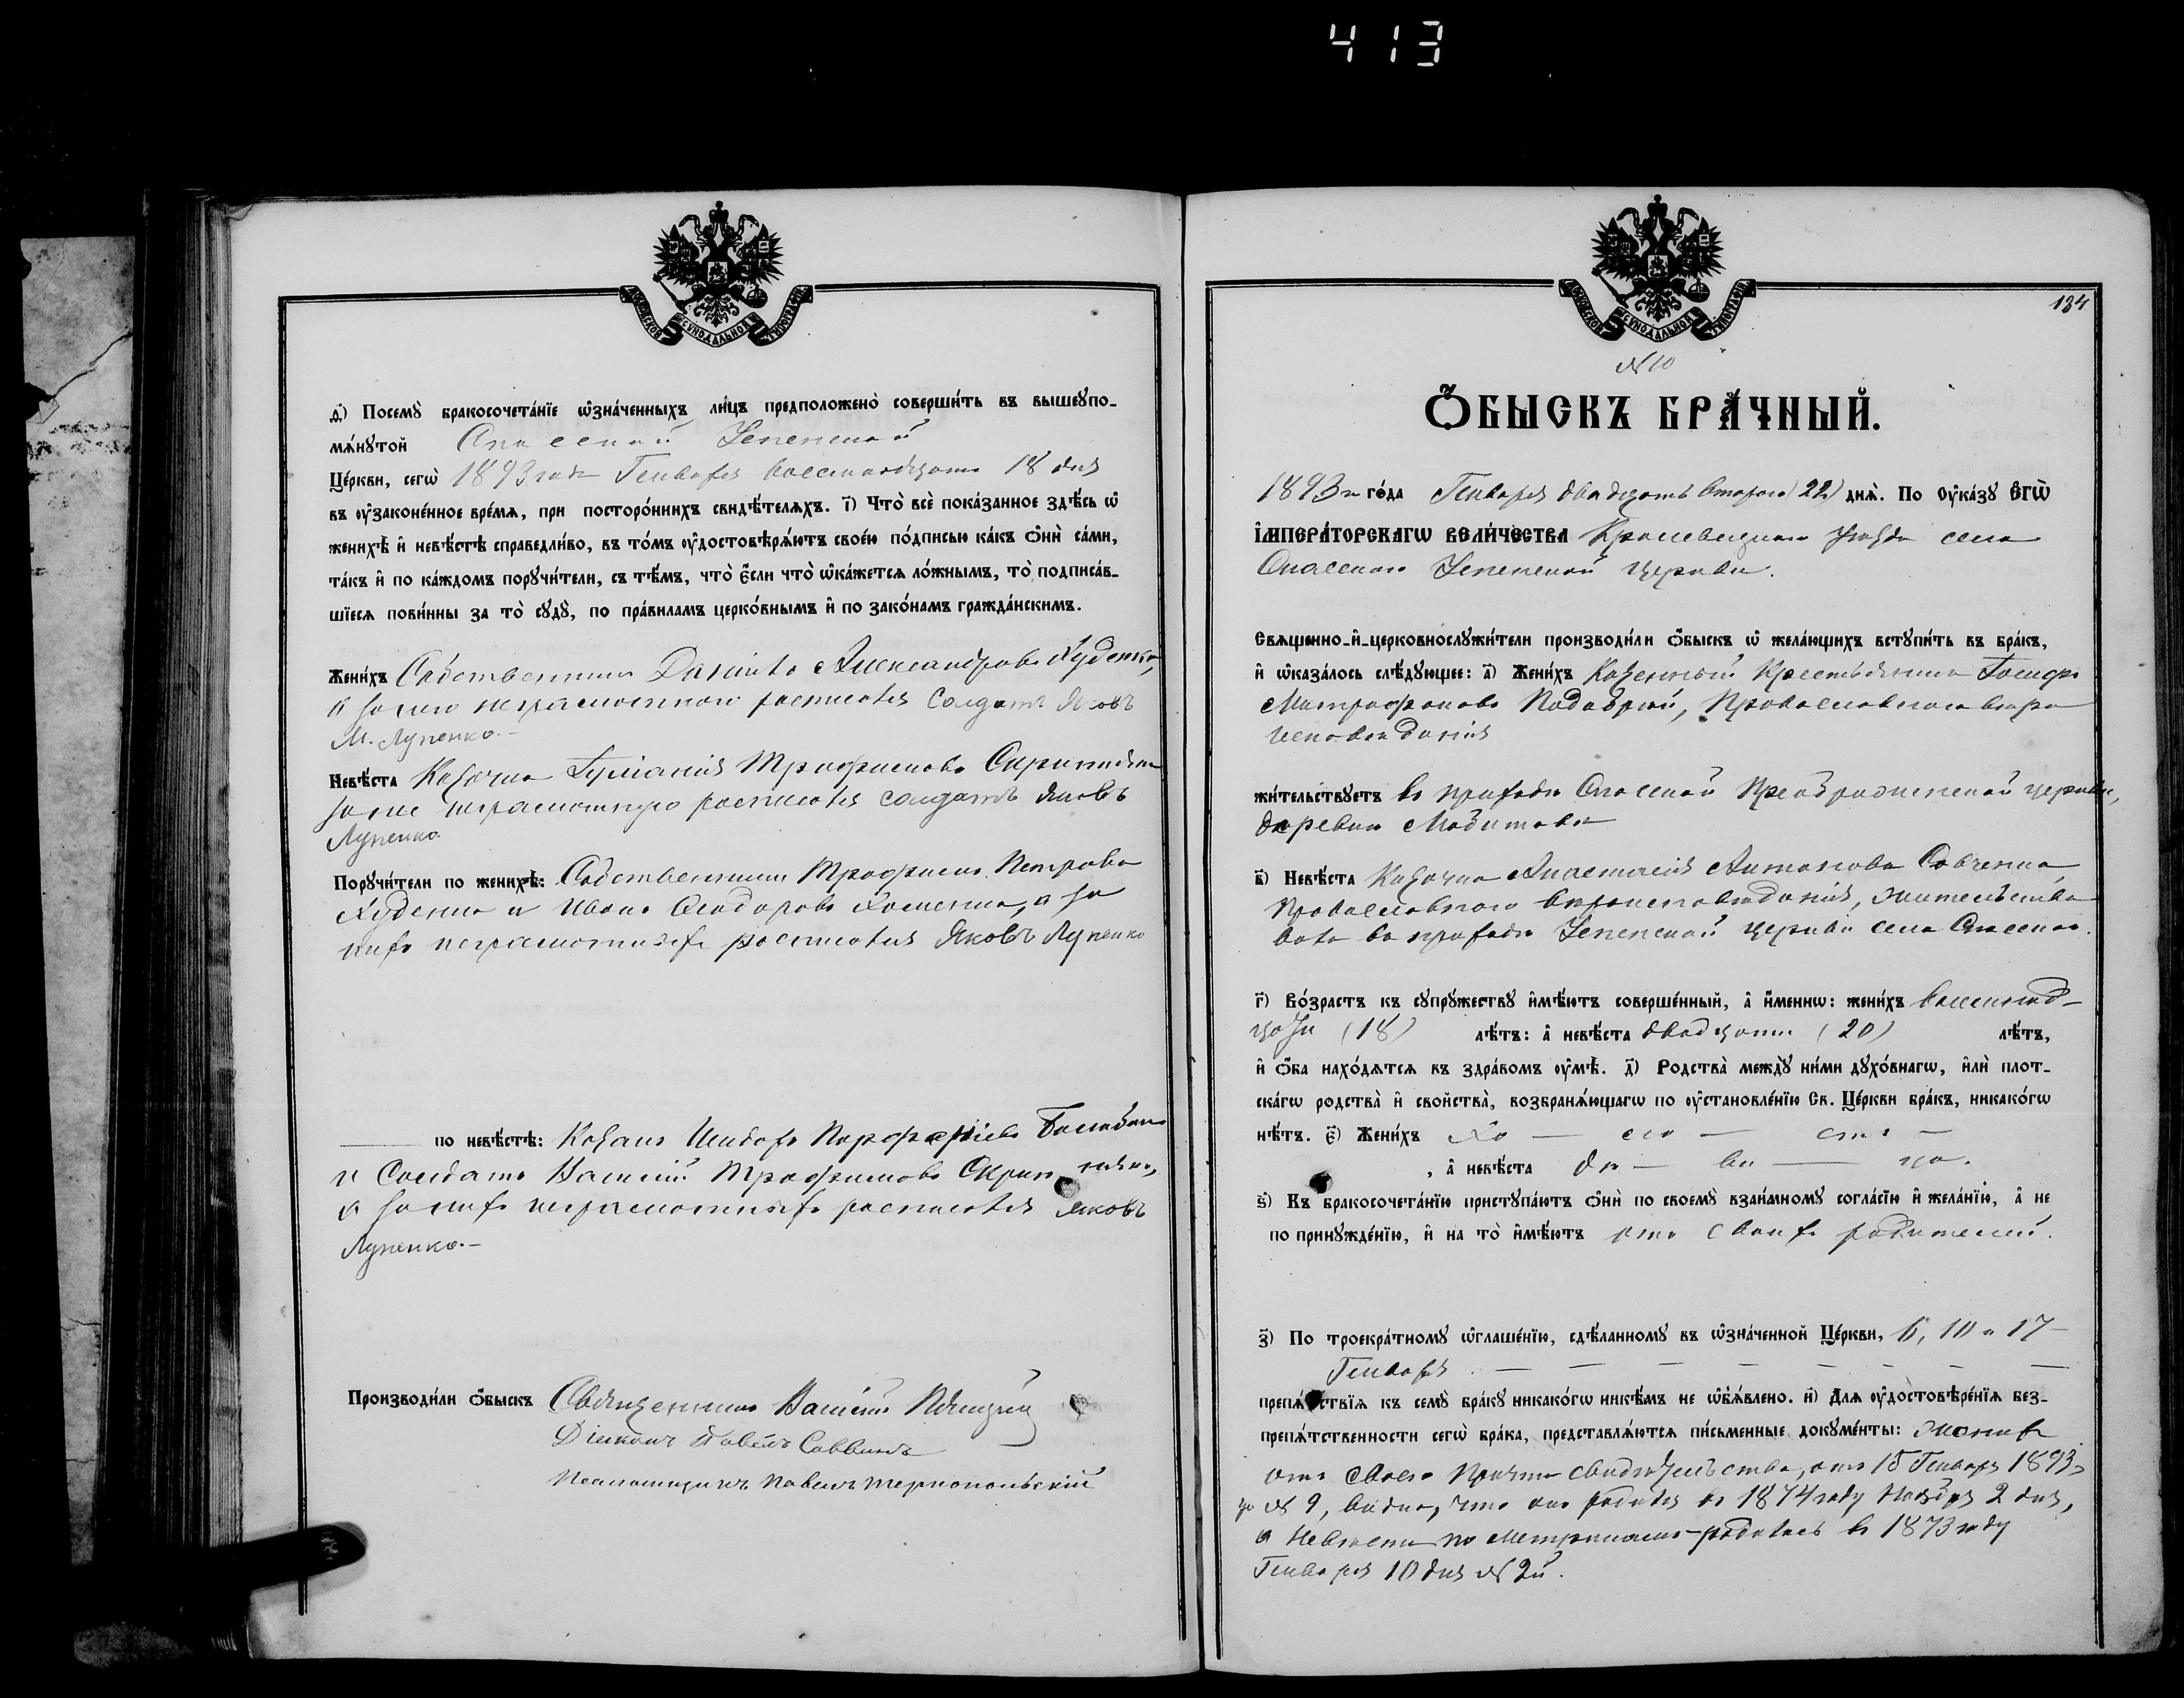 413
МОСКОВСКОЙ СѴНОДАЛЬНОЙ ТИПОГРАФІИ
д҃) Посемꙋ̀ бракосочета́нїе ѡ҆зна́ченныхъ ли́цъ предположено̀ соверши́ть въ вышеꙋпо-
мѧ́нꙋтой Спасской Успенской
Це́ркви, сегѡ̀ 1893 года Генваря восемнадцатого 18 дня
въ ᲂу҆законе́нное вре́мѧ, при посторо́ннихъ свидѣ́телѧхъ. і҃) Что̀ всѐ пока́занное здѣ́сь ѡ҆
женихѣ̀ и҆ невѣ́стѣ справедли́во, въ то́мъ ᲂу҆достовѣрѧ́ютъ свое́ю по́дписью ка́къ ѻ҆нѝ са́ми,
та́къ и҆ по ка́ждомъ порꙋчи́тели, съ тѣ́мъ, что̀ є҆́сли что̀ ѡ҆ка́жетсѧ ло́жнымъ, то̀ подписа́в-
шїесѧ пови́нны за то̀ сꙋдꙋ̀, по пра́виламъ церко́внымъ и҆ по зако́намъ гражда́нскимъ.
Жени́хъ Собственникъ Даніилъ Александровъ Худенко,
а за него неграмотного росписался Солдатъ Яковъ
М. Лупенко.-
Невѣ́ста Козачка Іуліанія Трофимова
за нее неграмотную росписался солдатъ Яковъ
Лупенко
Порꙋчи́тели по женихѣ̀: Собственники Трофимъ Петровъ
Худенко и Иванъ Ѳеодоровъ Хоменко, а за
нихъ неграмотныхъ росписался Яковъ Лупенко
по невѣ́стѣ: Козакъ Исидоръ Порфиріевъ
и Солдатъ Василій Трофимовъ
а за нихъ неграмотныхъ росписался Яковъ
Лупенко.-
Производи́ли ѻ҆́быскъ Священникъ Василій
Діаконъ Павелъ Саввинъ
Псаломщикъ Павелъ Тернопольскій
МОСКОВСКОЙ СѴНОДАЛЬНОЙ ТИПОГРАФІИ
134
№ 10
Ѻ҆́БЫСКЪ БРА́ЧНЫЙ.
1893 го́да Генваря двадцать второго (22) днѧ̀. По ᲂу҆ка́зꙋ Є҆гѡ̀
І҆мпера́торскагѡ вели́чества Кролевецкого уѣзда села
Спасского Успенской церкви.
Свѧщенно-и҆-церковнослꙋжи́тели производи́ли ѻ҆́быскъ ѡ҆ жела́ющихъ встꙋпи́ть въ бра́къ,
и҆ ѡ҆каза́лось слѣ́дꙋющее: а҃) Жени́хъ Казенный Крестьянинъ Іосифъ
Митрофановъ Православного вѣро
исповѣданія
жи́тельствꙋетъ въ приходѣ Спасской Преображенской церкви,
деревни
в҃) Невѣ́ста Козачка Анастасія Антонова Савченко
Православного вѣроисповѣданія, жительство
вала въ приходѣ Успенской церкви села Спасского.
г҃) Во́зрастъ къ сꙋпрꙋ́жествꙋ и҆мѣ́ютъ соверше́нный, а҆ и҆́меннѡ: жени́хъ восемнад-
цать (18) лѣ́тъ: а҆ невѣ́ста двадцать (20) лѣ́тъ,
и҆ ѻ҆́ба нахо́дѧтсѧ въ здра́вомъ ᲂу҆мѣ̀. д҃) Родства̀ междꙋ̀ ни́ми дꙋхо́внагѡ, и҆лѝ плот-
ска́гѡ родства̀ и҆ свойства̀, возбранѧ́ющагѡ по ᲂу҆становле́нїю Св. Це́ркви бра́къ, никако́гѡ
нѣ́тъ. є҃) Жени́хъ хо — ло — стъ —
, а҆ невѣ́ста дѣ — ви — ца.
ѕ҃) Къ бракосочета́нїю пристꙋпа́ютъ ѻ҆нѝ по своемꙋ̀ взаи́мномꙋ согла́сїю и҆ жела́нїю, а҆ не
по принꙋжде́нїю, и҆ на то̀ и҆мѣ́ютъ отъ своихъ родителей.
з҃) По троекра́тномꙋ ѡ҆глаше́нїю, сдѣ́ланномꙋ въ ѡ҆зна́ченной Це́ркви, 6, 10 и 17
Генваря — — — — — — — —
препѧ́тствїѧ къ семꙋ̀ бра́кꙋ никако́гѡ никѣ́мъ не ѡ҆б̾ѧ́влено. и҃) Длѧ ᲂу҆достовѣре́нїѧ без-
препѧ́тственности сегѡ̀ бра́ка, представлѧ́ютсѧ пи́сьменные докꙋме́нты: женихъ
отъ своего причта свидѣтельство, отъ 15 Генваря 1893
за № 9, видно, что онъ родился въ 1874 году Ноября 2 дня,
а Невѣста по Метрикамъ - родилась въ 1873 году
Генваря 10 дня № 2й.